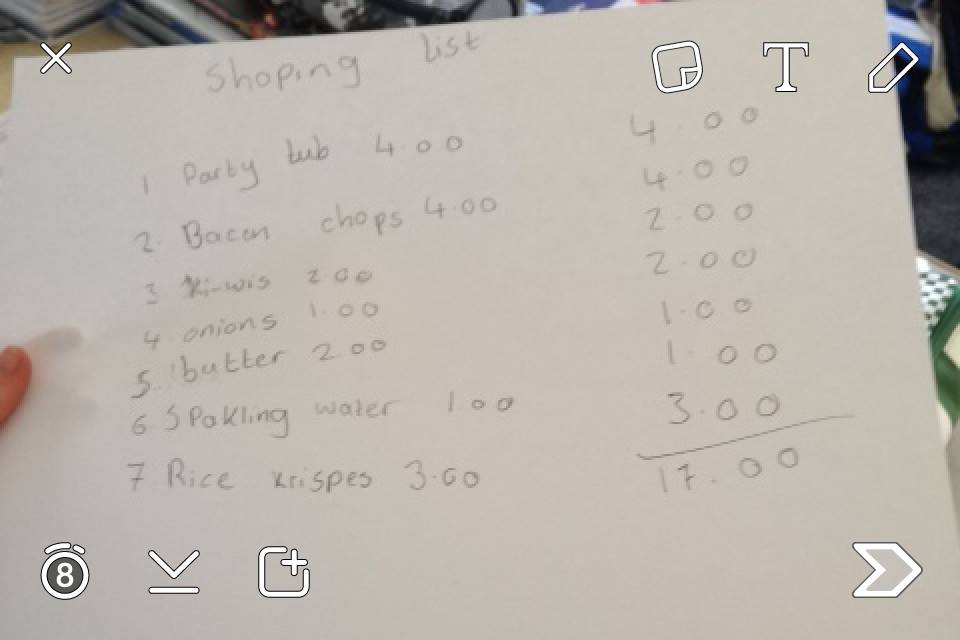 Shoping list
1 Party tub 4.00
2. Bacon chops 4.00
3 Ki-wis 2.00
4. onions 1.00
5. butter 2.00
6 SPakling water 1.00
7. Rice krispes 3.00
4.00
4.00
2.00
2.00
1.00
1.00
3.00
17.00
T
8